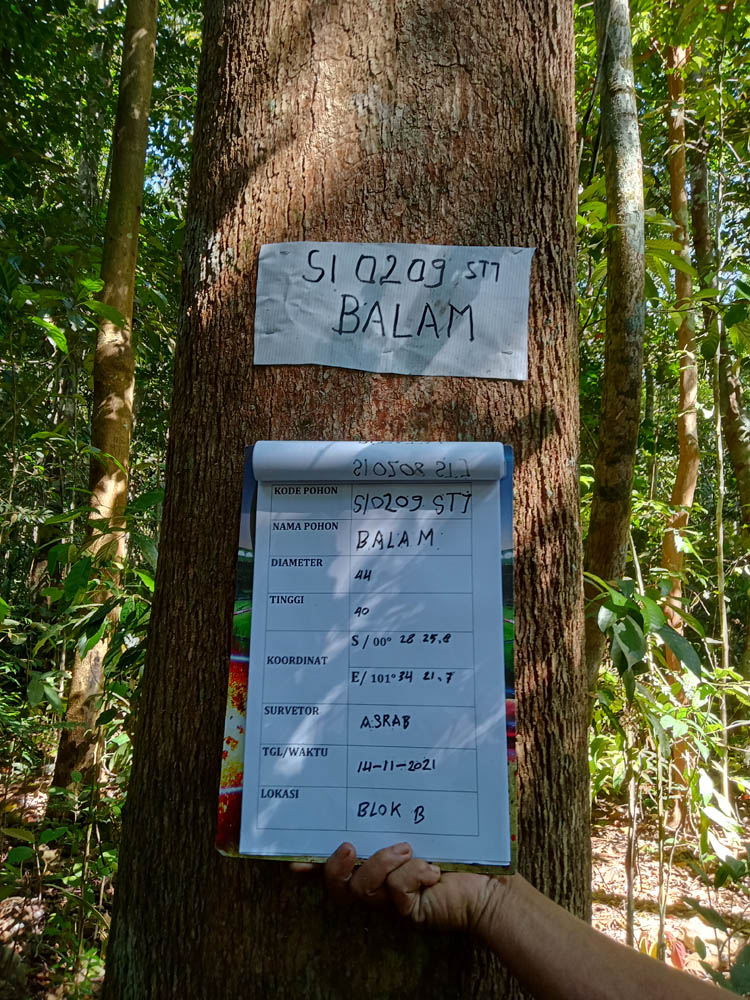 SI 0209 STJ
BALAM
KODE POHON SI0209 STJ
NAMA POHON BALAM
DIAMETER 44
TINGGI 40
KOORDINAT
S / 00° 28 25.8
E/ 101° 34 21.7
SURVETOR ASRAB
TGL/WAKTU 14-11-2021
LOKASI BLOK B